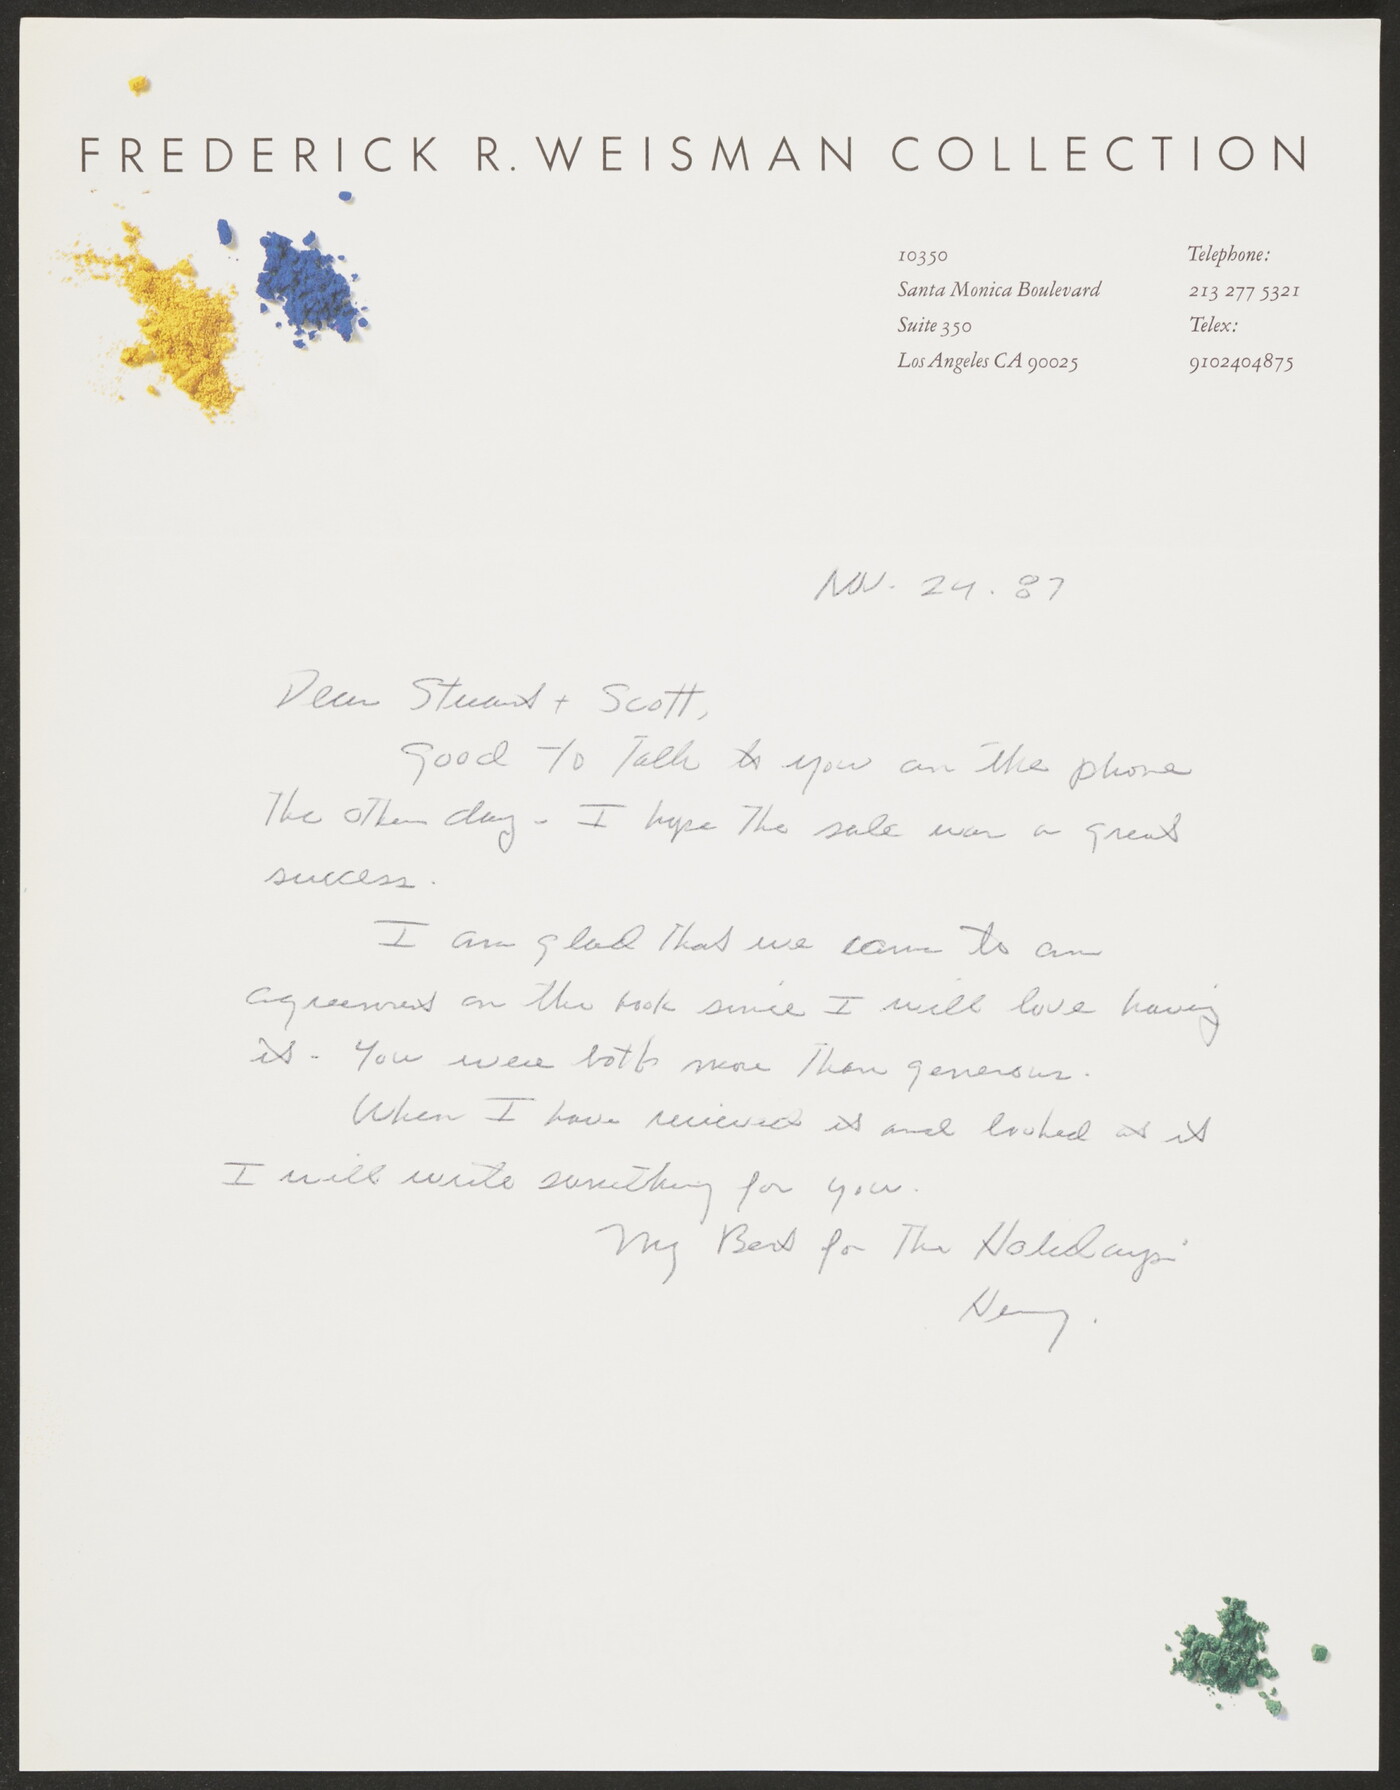 FREDERICK R. WEISMAN COLLECTION
10350
Santa Monica Boulevard
Suite 350
Los Angeles CA 90025
Telephone:
213 277 5321
Telex:
9102404875
Nov. 24. 87
Dear Stuart + Scott,
Good to Talk to you on the phone
The other day - I hope The sale was a great
success.
I am glad that we came to an
agreement on the book since I will love having
it - You were both more Than generous.
When I have recieved it and looked at it
I will write something for you.
My Best for The Holidays
Henry.